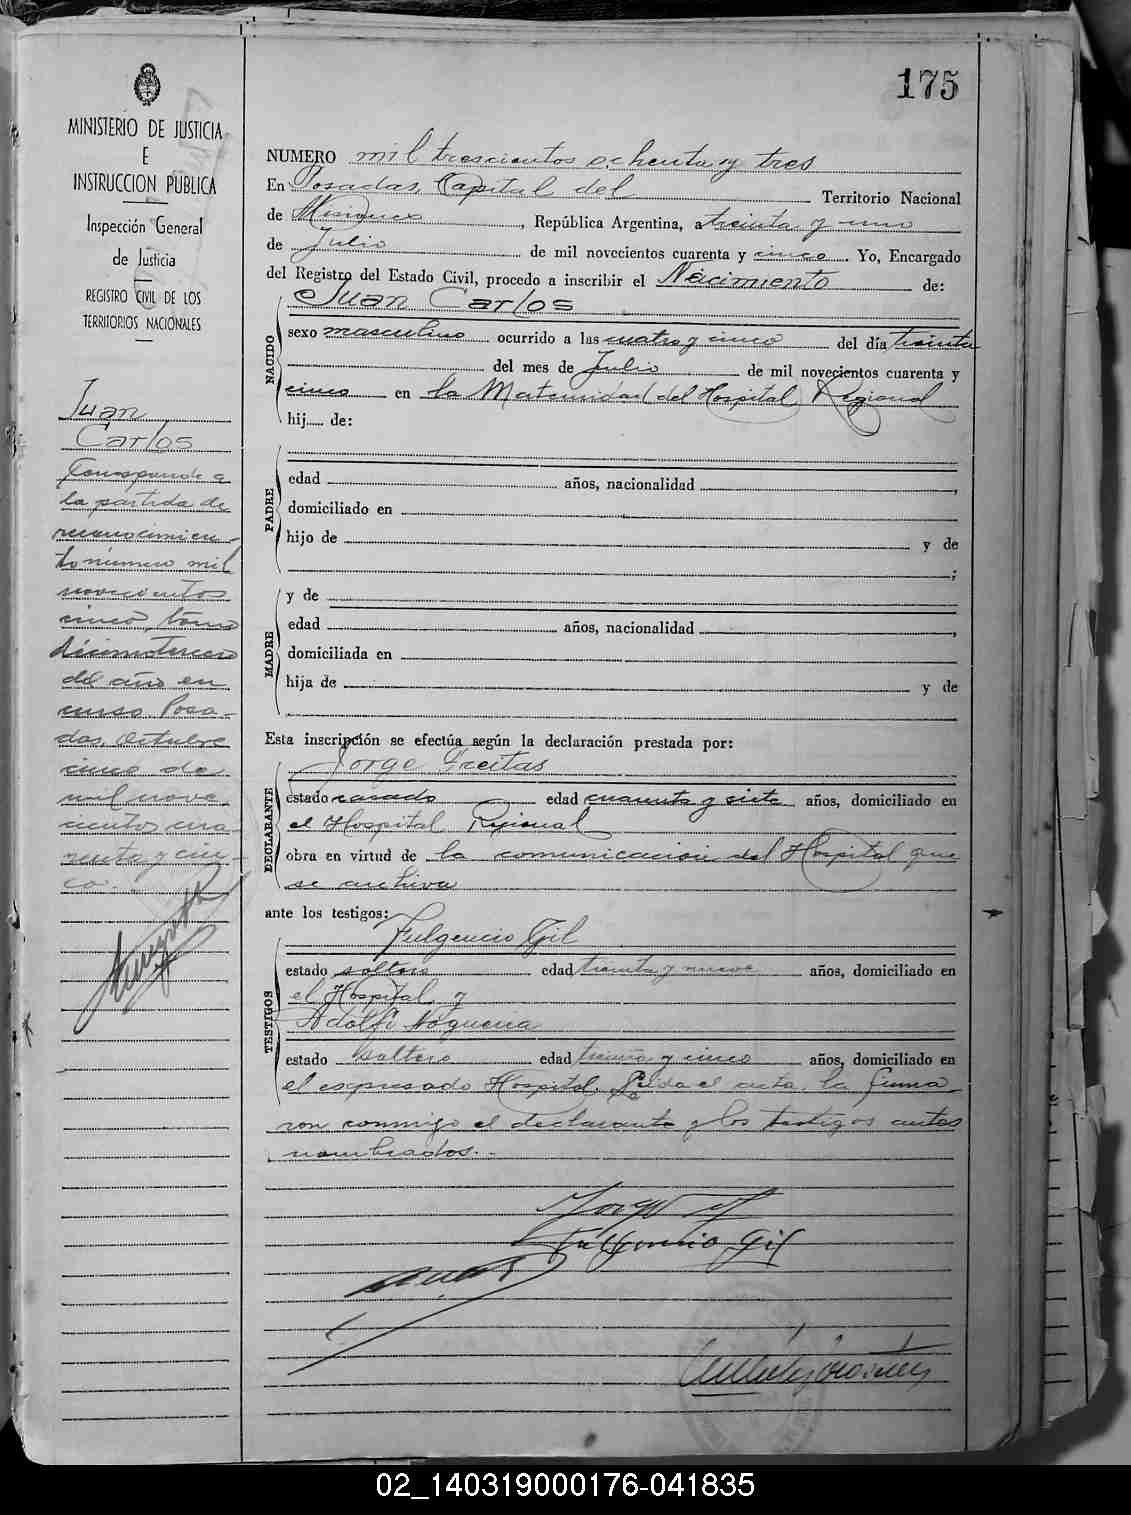 175
MINISTERIO DE JUSTICIA
E
INSTRUCCION PUBLICA
Inspección General
de Justicia
REGISTRO CIVIL DE LOS
TERRITORIOS NACIONALES
Juan
Carlos
Corresponde a
la partida de
reconocimien-
to número mil
novecientos
cinco, tomo
décimotercero
del año en
curso. Posa-
das, Octubre
cinco de
mil nove
cientos cua-
renta y cin-
co.
NUMERO mil trescientos ochenta y tres
En Posadas, Capital del Territorio Nacional
de Misiones, República Argentina, a treinta y uno
de Julio de mil novecientos cuarenta y cinco. Yo, Encargado
del Registro del Estado Civil, procedo a inscribir el Nacimiento de:
Juan Carlos
NACIDO
sexo masculino ocurrido a las cuatro y cinco del día treinta
del mes de Julio de mil novecientos cuarenta y
cinco en la Maternidad del Hospital Regional
hij..... de:
PADRE
edad años, nacionalidad ,
domiciliado en
hijo de y de
;
y de
MADRE
edad años, nacionalidad ,
domiciliada en
hija de y de
Esta inscripción se efectúa según la declaración prestada por:
Jorge Freitas
DECLARANTE
estado casado edad cuarenta y siete años, domiciliado en
el Hospital Regional
obra en virtud de la comunicación del Hospital que
se archiva
ante los testigos:
Fulgencio Gil
TESTIGOS
estado soltero edad treinta y nueve años, domiciliado en
el Hospital y
Adolfo Noguera
estado soltero edad treinta y cinco años, domiciliado en
el expresado Hospital. Leída el acta, la firma
ron conmigo el declarante y los testigos antes
nombrados.-
Fulgencio Gil
02_140319000176-041835